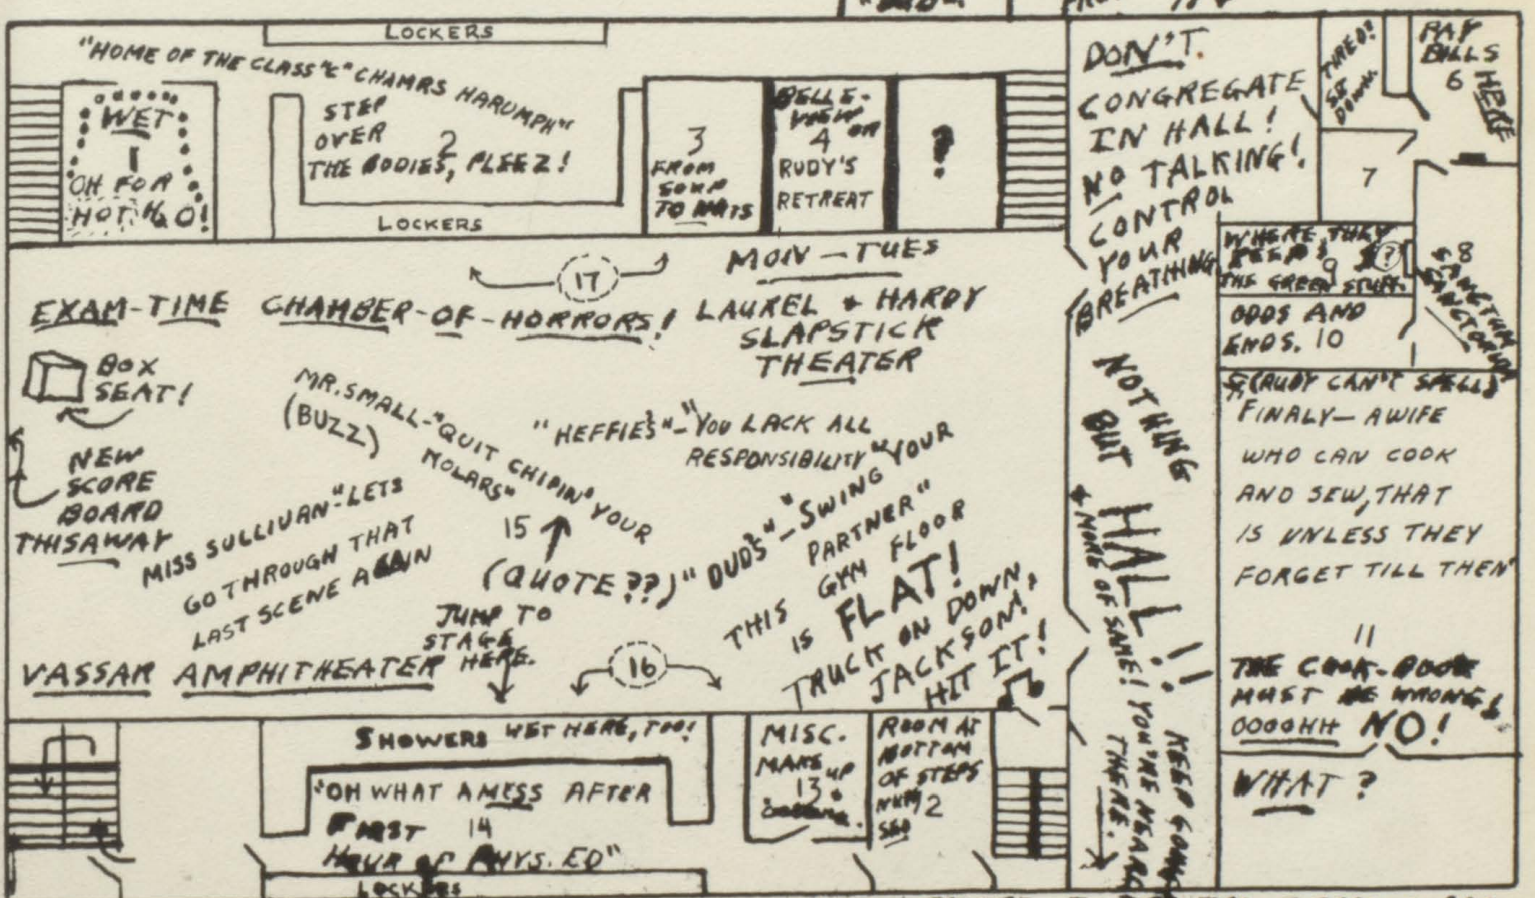 LOCKERS
"HOME OF THE CLASS "C" CHAMPS HARUMPH"
WET
1
OH FOR
HOT H2O!
STEP
OVER 2
THE BODIES, PLEEZ!
LOCKERS
3
FROM
SOUP
TO NUTS
BELLE-
VIEW OR
4
RUDY'S
RETREAT
?
DON'T
CONGREGATE
IN HALL!
NO TALKING!
CONTROL
YOUR
BREATHING
TIRED?
SIT
DOWN.
PAY
BILLS
6 HERE
7
WHERE THEY
KEEP $ ?
9
THE GREEN STUFF.
8
SANCTUM
SANCTORIUM
ODDS AND
ENDS. 10
(RUDY CAN'T SPELL)
FINALY— A WIFE
WHO CAN COOK
AND SEW, THAT
IS UNLESS THEY
FORGET TILL THEN
11
THE COOK-BOOK
MUST BE WRONG!
OOOOHH NO!
WHAT?
17
MON — TUES
LAUREL & HARDY
SLAPSTICK
THEATER
EXAM-TIME CHAMBER-OF-HORRORS!
BOX
SEAT!
NEW
SCORE
BOARD
THISAWAY
MR. SMALL-"QUIT CHIPIN' YOUR
(BUZZ) MOLARS"
"HEFFIE'S"-"YOU LACK ALL
RESPONSIBILITY"
MISS SULLIVAN-"LETS
GO THROUGH THAT
LAST SCENE AGAIN
15
(QUOTE??)
"DUD'S"-"SWING YOUR
PARTNER"
THIS GYM FLOOR
IS FLAT!
TRUCK ON DOWN,
JACKSON!
HIT IT!
JUMP TO
STAGE
HERE.
16
VASSAR AMPHITHEATER
NOTHING
BUT HALL!!
& MORE OF SAME! YOU'RE NEARLY
THERE.
KEEP GOING
SHOWERS WET HERE, TOO!
"OH WHAT A MESS AFTER
FIRST 14
HOUR OF PHYS. ED"
LOCKERS
MISC.
MAKE UP
13 &
ROOM AT
BOTTOM
OF STEPS
12